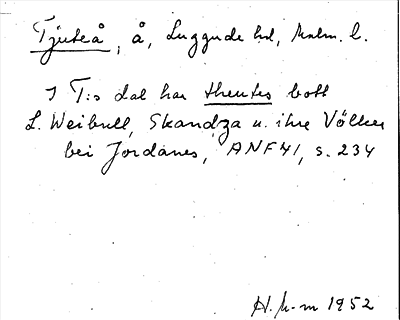 Tjuteå, å, Luggude hd, Malm. l.
I T:s dal har theutes bott
L. Weibull, Skandza u. ihre Völker
bei Jordanes, ANF 41, s. 234
1952